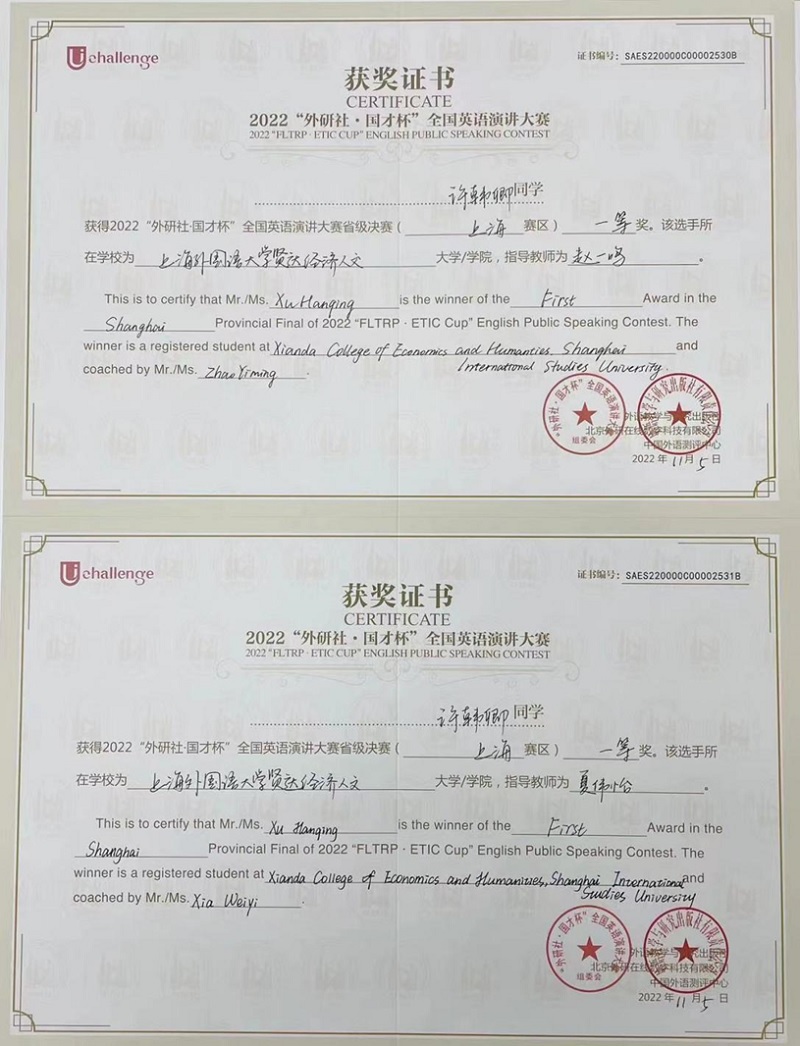 Uchallenge
证书编号：SAES220000C00002530B
获奖证书
CERTIFICATE
2022“外研社·国才杯”全国英语演讲大赛
2022 "FLTRP · ETIC CUP" ENGLISH PUBLIC SPEAKING CONTEST
许韩卿同学
获得2022“外研社·国才杯”全国英语演讲大赛省级决赛（上海赛区）一等奖。该选手所
在学校为上海外国语大学贤达经济人文大学/学院，指导教师为赵一鸣。
This is to certify that Mr./Ms. Xu Hanqing is the winner of the First Award in the
Shanghai Provincial Final of 2022 "FLTRP · ETIC Cup" English Public Speaking Contest. The
winner is a registered student at Xianda College of Economics and Humanties, Shanghai and
International Studies University.
coached by Mr./Ms. Zhao Yiming.
"外研社·国才杯"全国英语演讲大赛
组委会
外语教学与研究出版社
北京外研在线数字科技有限公司
中国外语测评中心
2022年11月5日
Uchallenge
证书编号：SAES220000C00002531B
获奖证书
CERTIFICATE
2022“外研社·国才杯”全国英语演讲大赛
2022 "FLTRP · ETIC CUP" ENGLISH PUBLIC SPEAKING CONTEST
许韩卿同学
获得2022“外研社·国才杯”全国英语演讲大赛省级决赛（上海赛区）一等奖。该选手所
在学校为上海外国语大学贤达经济人文大学/学院，指导教师为夏。
This is to certify that Mr./Ms. Xu Hanqing is the winner of the First Award in the
Shanghai Provincial Final of 2022 "FLTRP · ETIC Cup" English Public Speaking Contest. The
winner is a registered student at Xianda College of Economics and Humanities, Shanghai International and
Studies University
coached by Mr./Ms. Xia Weiyi.
"外研社·国才杯"全国英语演讲大赛
组委会
外语教学与研究出版社
北京外研在线数字科技有限公司
中国外语测评中心
2022年11月5日